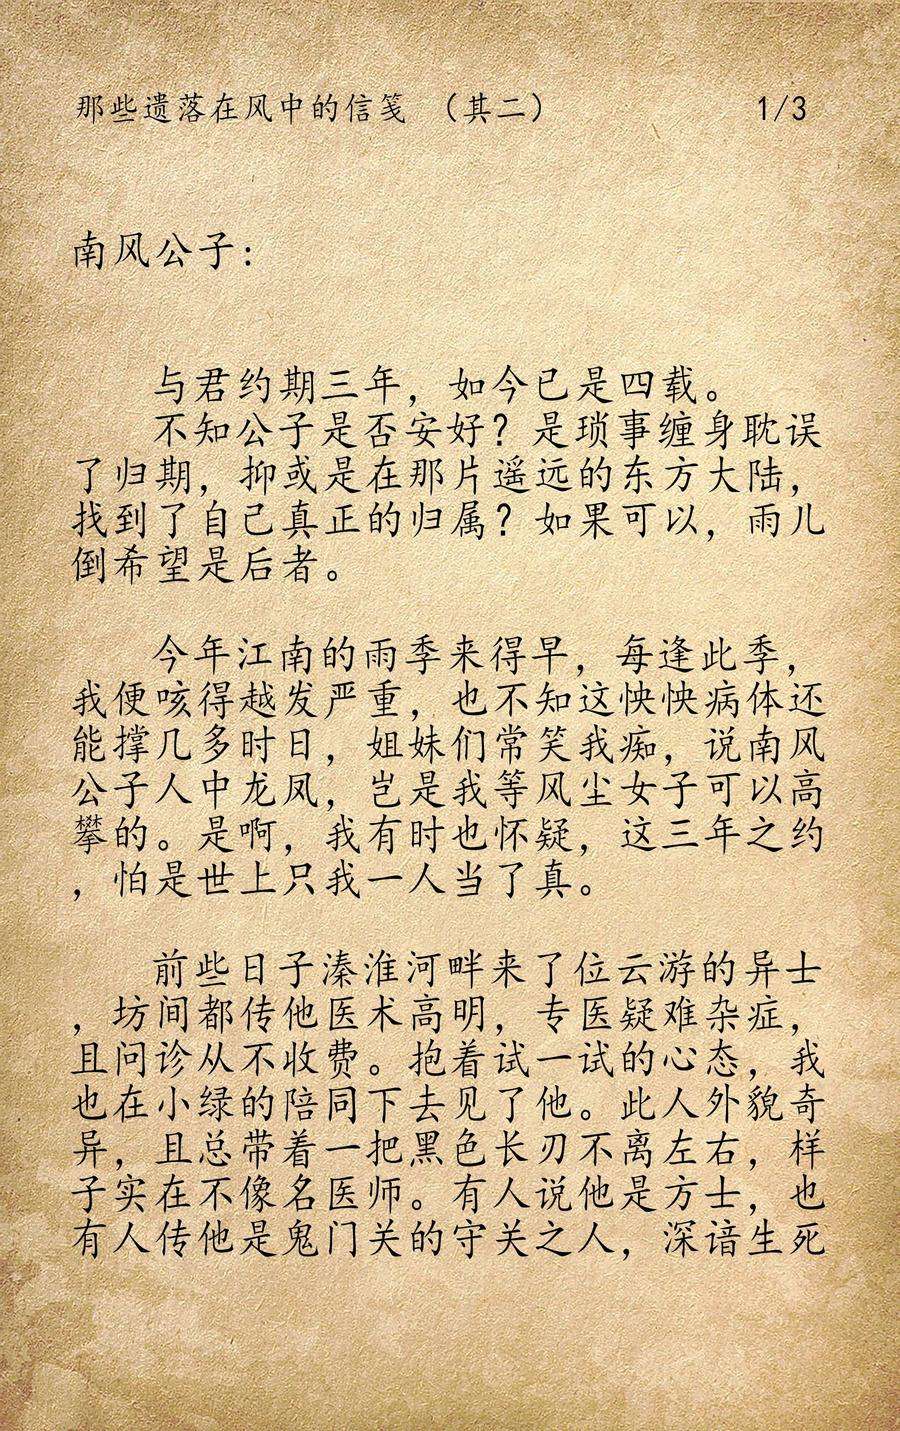 那些遗落在风中的信笺 （其二） 1/3
南风公子：
与君约期三年，如今已是四载。
不知公子是否安好？是琐事缠身耽误
了归期，抑或是在那片遥远的东方大陆，
找到了自己真正的归属？如果可以，雨儿
倒希望是后者。
今年江南的雨季来得早，每逢此季，
我便咳得越发严重，也不知这怏怏病体还
能撑几多时日，姐妹们常笑我痴，说南风
公子人中龙凤，岂是我等风尘女子可以高
攀的。是啊，我有时也怀疑，这三年之约
，怕是世上只我一人当了真。
前些日子溱淮河畔来了位云游的异士
，坊间都传他医术高明，专医疑难杂症，
且问诊从不收费。抱着试一试的心态，我
也在小绿的陪同下去见了他。此人外貌奇
异，且总带着一把黑色长刃不离左右，样
子实在不像名医师。有人说他是方士，也
有人传他是鬼门关的守关之人，深谙生死